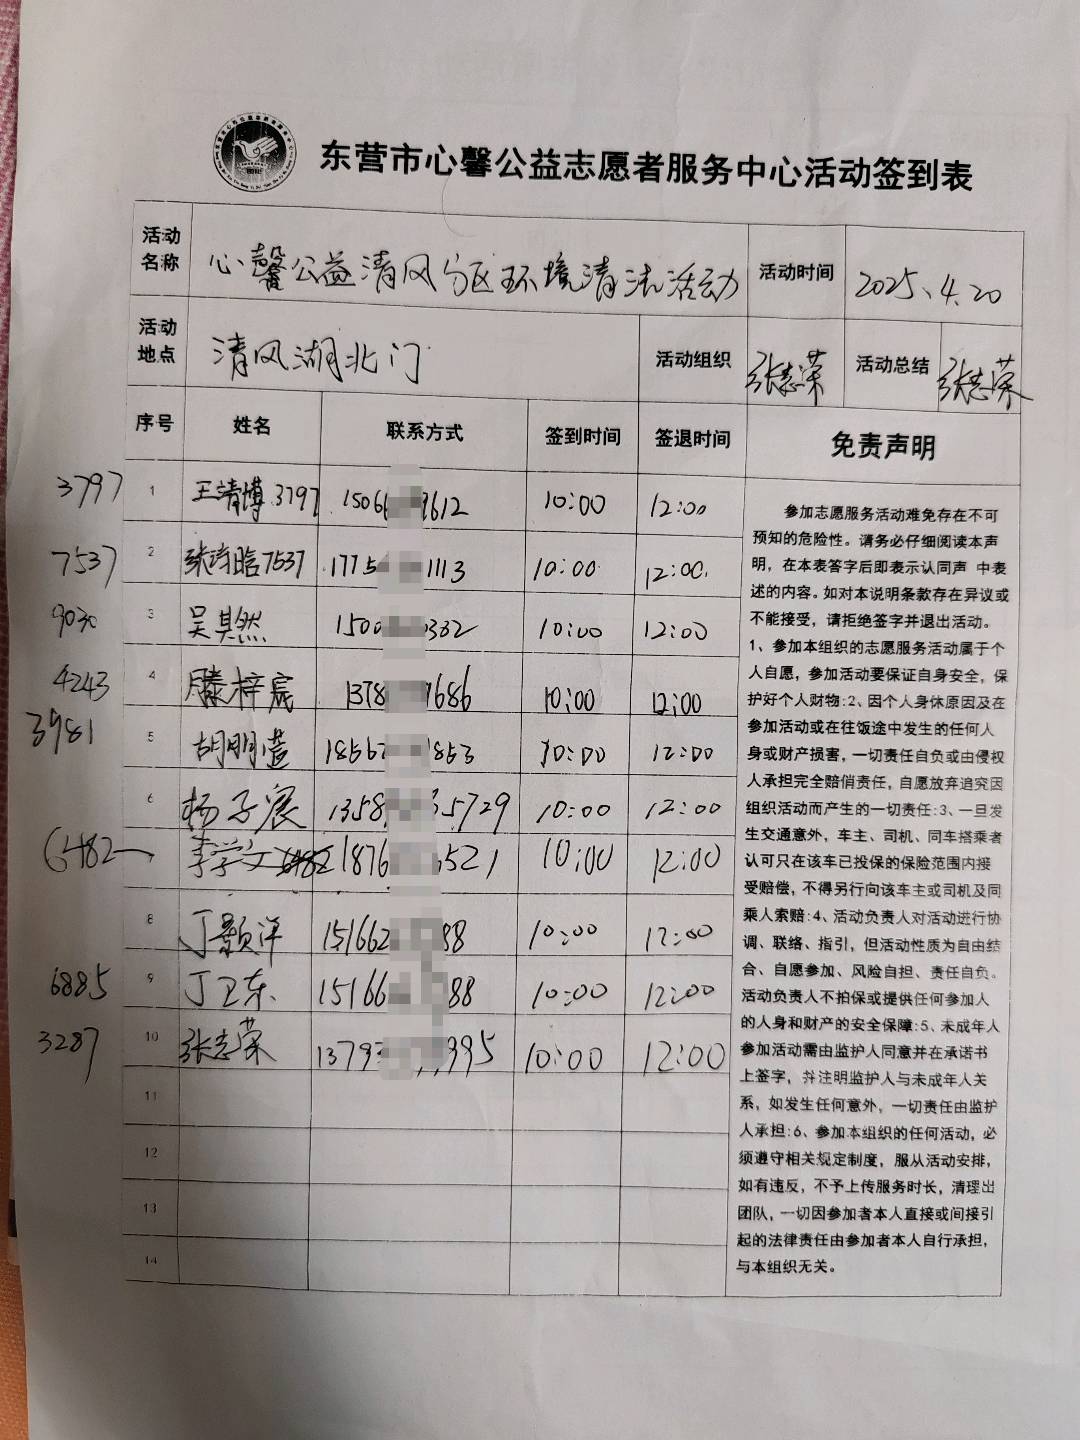 东营市心馨公益志愿者服务中心活动签到表
活动名称 心馨公益清风分区环境清洁活动 活动时间 2025.4.20
活动地点 清风湖北门 活动组织 张志荣 活动总结 张志荣
序号 姓名 联系方式 签到时间 签退时间 免责声明
3797 1 王靖博 3797 1506 9612 10:00 12:00
7537 2 张 晗 7537 1775 1113 10:00 12:00
9030 3 吴其然 150 0332 10:00 12:00
4243 4 滕梓宸 1378 1686 10:00 12:00
3981 5 胡明 1856 1853 10:00 12:00
6 杨子宸 1358 35729 10:00 12:00
6482 7 李学文 6482 1876 6521 10:00 12:00
8 丁颢洋 151662 88 10:00 12:00
6885 9 丁卫东 15166 88 10:00 12:00
3287 10 张志荣 1379 395 10:00 12:00
11
12
13
14
参加志愿服务活动难免存在不可
预知的危险性。请务必仔细阅读本声
明，在本表签字后即表示认同声 中表
述的内容。如对本说明条款存在异议或
不能接受，请拒绝签字并退出活动。
1、参加本组织的志愿服务活动属于个
人自愿，参加活动要保证自身安全，保
护好个人财物:2、因个人身体原因及在
参加活动或在往饭途中发生的任何人
身或财产损害，一切责任自负或由侵权
人承担完全赔俏责任，自愿放弃追究因
组织活动而产生的一切责任:3、一旦发
生交通意外，车主、司机、同车搭乘者
认可只在该车已投保的保险范围内接
受赔偿，不得另行向该车主或司机及同
乘人索赔:4、活动负责人对活动进行协
调、联络、指引，但活动性质为自由结
合、自愿参加、风险自担、责任自负。
活动负责人不拍保或提供任何参加人
的人身和财产的安全保障:5、未成年人
参加活动需由监护人同意并在承诺书
上签字，并注明监护人与未成年人关
系，如发生任何意外，一切责任由监护
人承担:6、参加本组织的任何活动，必
须遵守相关规定制度，服从活动安排，
如有违反，不予上传服务时长，清理出
团队，一切因参加者本人直接或间接引
起的法律责任由参加者本人自行承担，
与本组织无关。